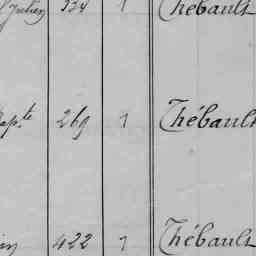 Julien 334 7 Thébault
Bapte 269 7 Thébault
422 7 Thébault